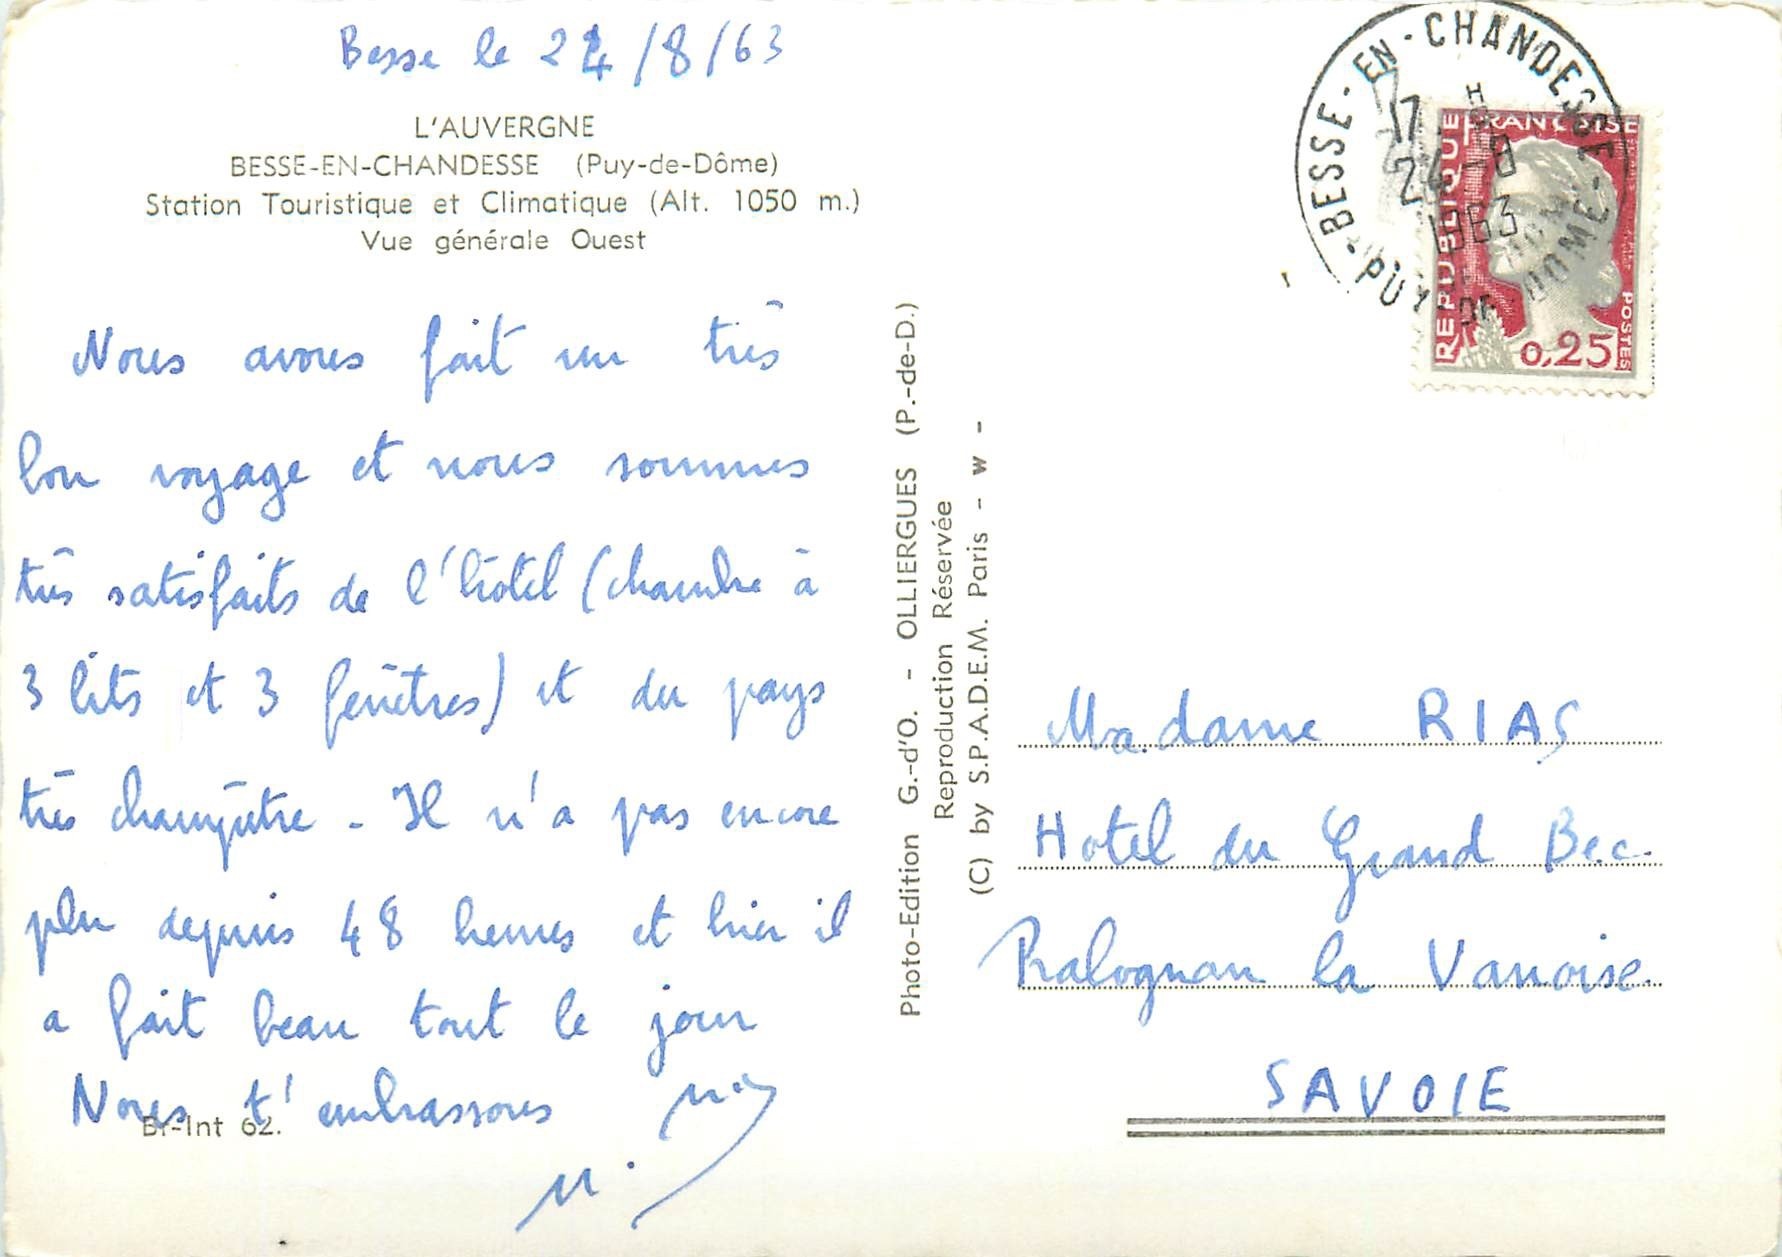 Besse le 24/8/63
L'AUVERGNE
BESSE-EN-CHANDESSE (Puy-de-Dôme)
Station Touristique et Climatique (Alt. 1050 m.)
Vue générale Ouest
Nous avons fait un très
bon voyage et nous sommes
très satisfaits de l'hôtel (chambre à
3 lits et 3 fenêtres) et du pays
très champêtre - Il n'a pas encore
plu depuis 48 heures et hier il
a fait beau tout le jour
Nous t'embrassons
Br-Int 62.
Photo-Edition G.-d'O. - OLLIERGUES (P.-de-D.)
Reproduction Réservée
(C) by S.P.A.D.E.M. Paris - w -
BESSE-EN-CHANDESSE
17 H
24-8
1963
PUY-DE-DOME
REPUBLIQUE FRANÇAISE
POSTES
0,25
Madame RIAS
Hotel du Grand Bec
Pralognan la Vanoise
SAVOIE